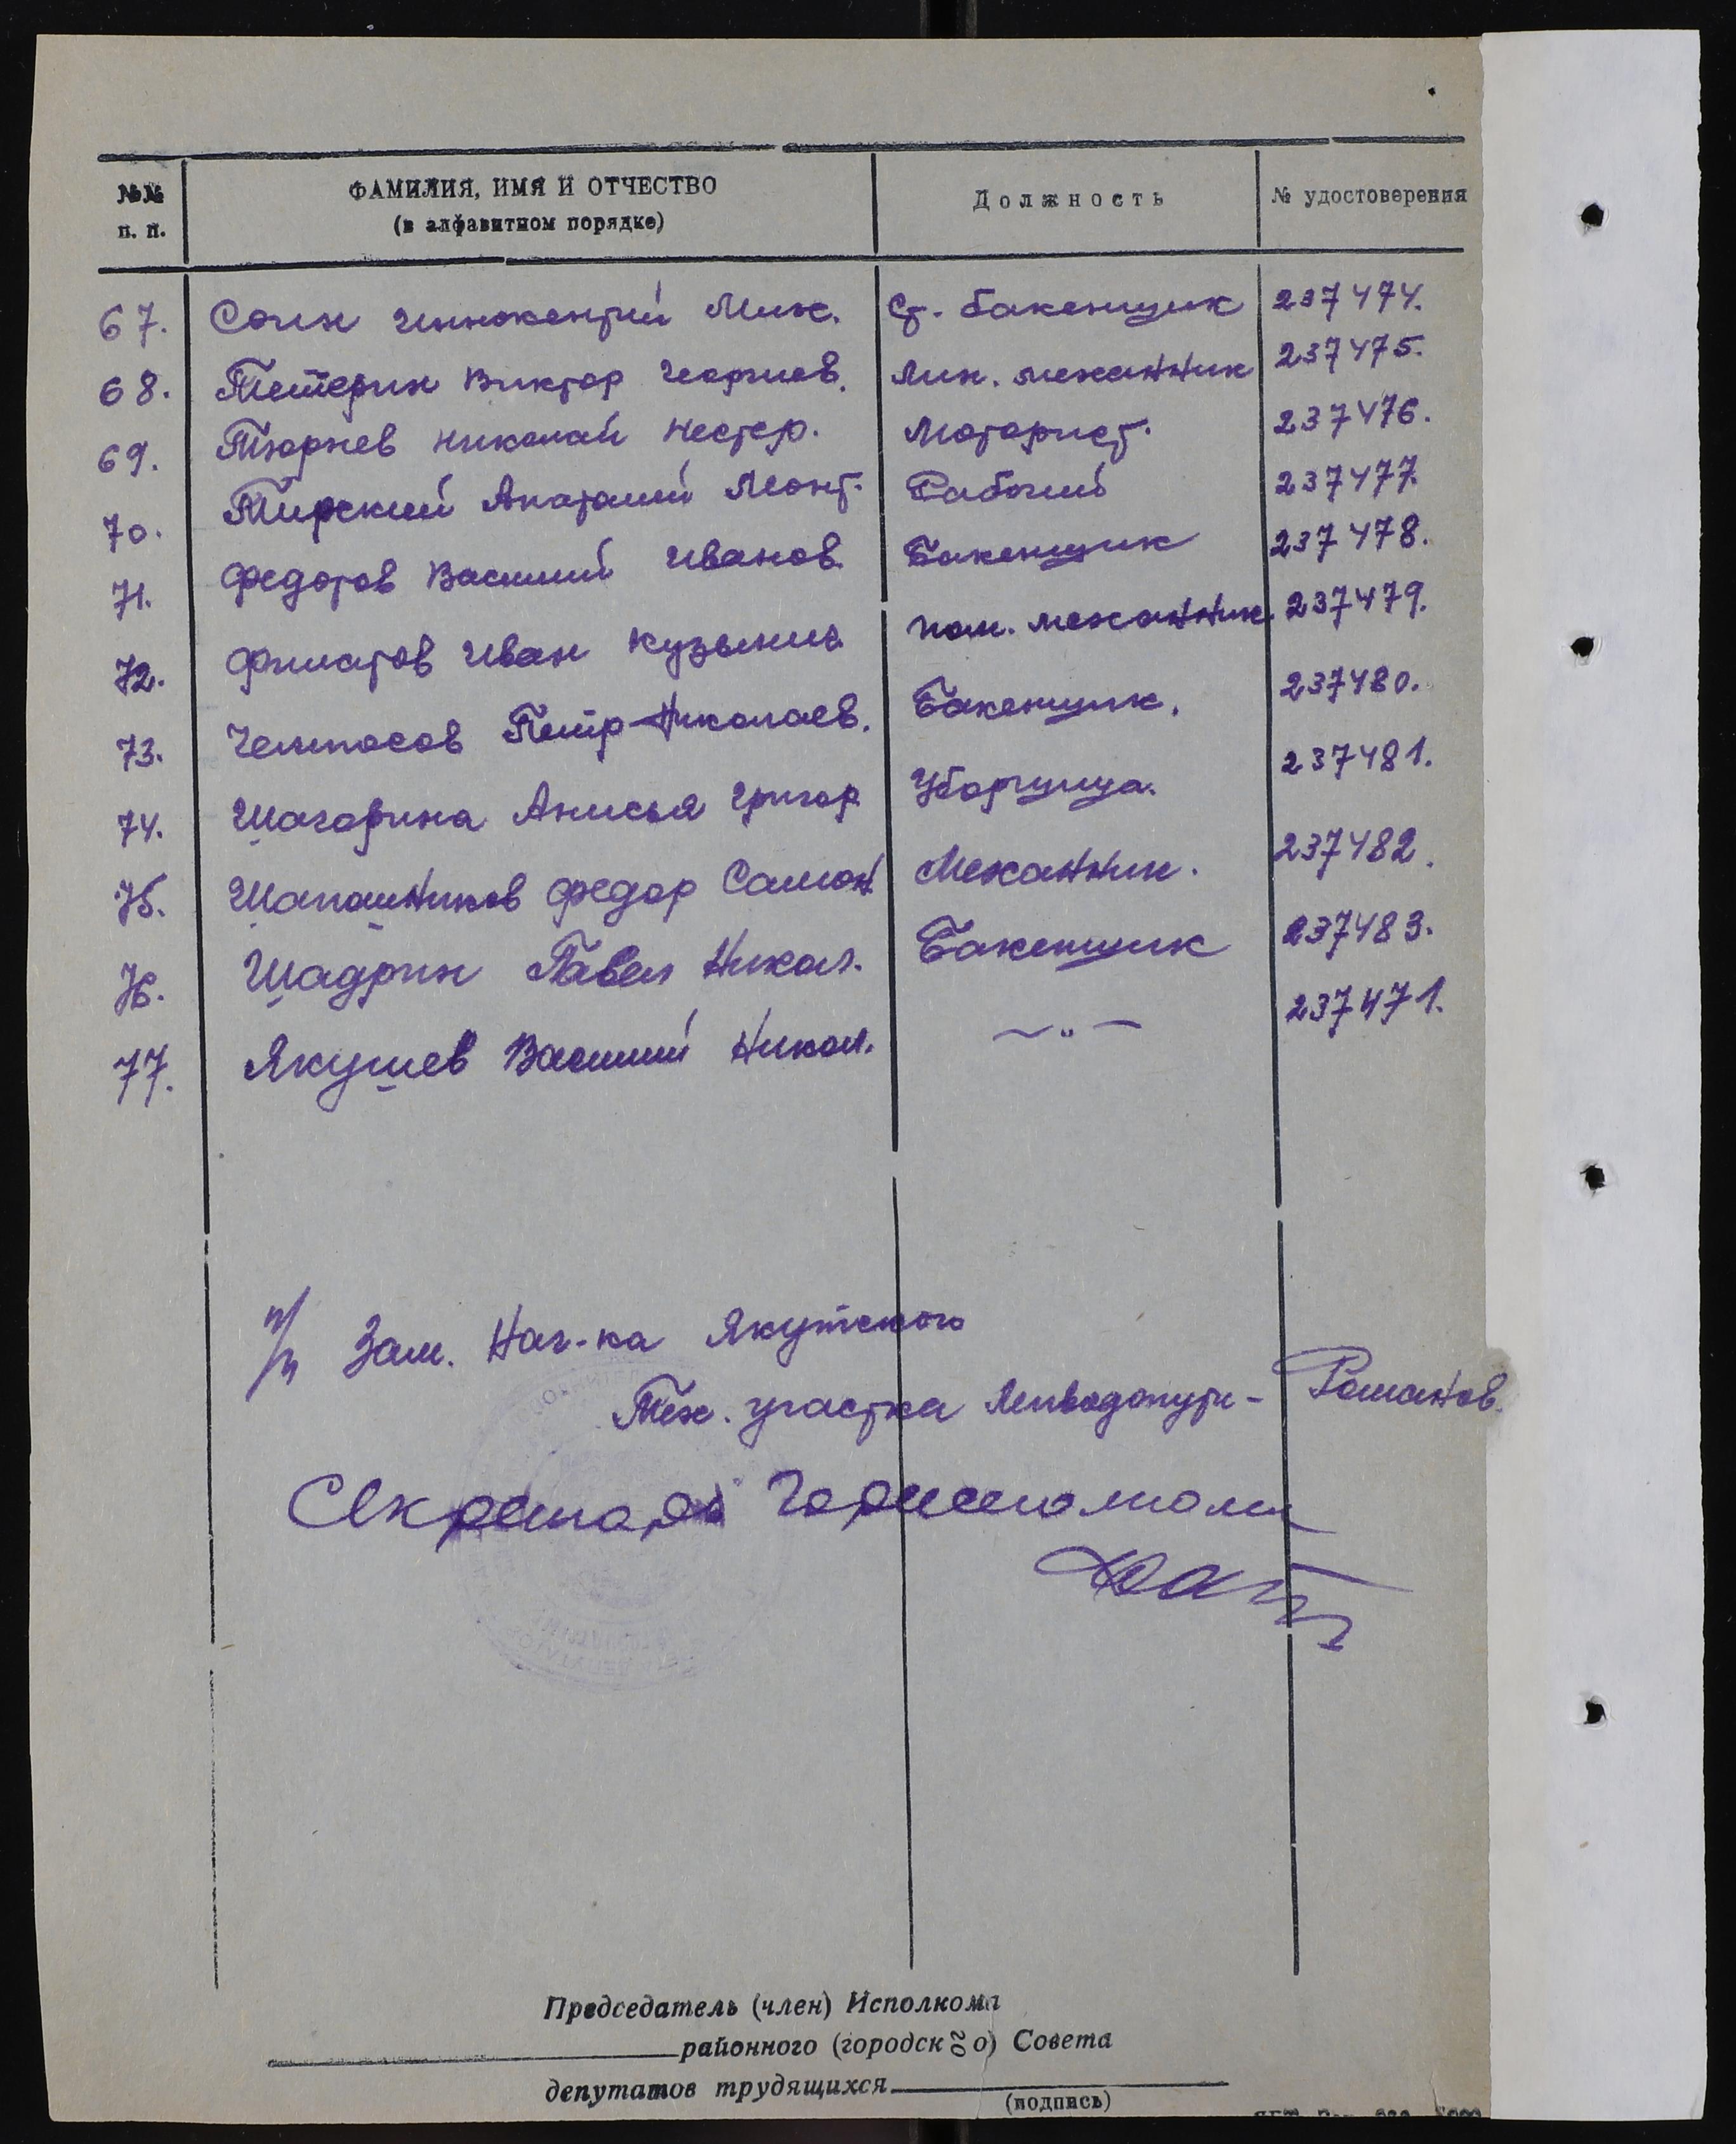 №№ п. п. ФАМИЛИЯ, ИМЯ И ОТЧЕСТВО (в алфавитном порядке) Должность № удостоверения
67. Соин Иннокентий Мих. Ст. бакенщик 237474.
68. Тетерин Виктор Георгиев. Лин. механник 237475.
69. Тюрнев Николай Нестер. Моторист. 237476.
70. Тирский Анатолий Леонт. Рабочий 237477.
71. Федотов Василий Иванов. Бакенщик 237478.
72. Филатов Иван Кузьмич. пом. механник. 237479.
73. Челпосов Петр Николаев. Бакенщик. 237480.
74. Шагарина Анисья Григор. Уборщица. 237481.
75. Шапошников Федор Самон Механник. 237482.
76. Шадрин Павел Никол. Бакенщик 237483.
77. Якушев Василий Никол. —"— 237471.
п/п Зам. Нач-ка Якутского
Тех. участка Ленводопути - Романов.
Секретарь Горисполкома
Председатель (член) Исполкома
районного (городского) Совета
депутатов трудящихся
(подпись)